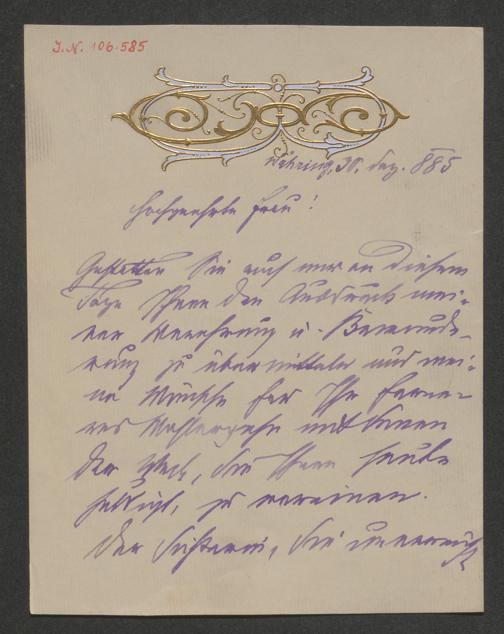 J. N. 106.585
Währing, 30. Dez. 885
Hochgeehrte Frau!
Gestatten Sie auch mir an diesem
Tage Ihnen den Ausdruck mei-
ner Verehrung u. Bewunde-
rung zu übermitteln und mei-
ne Wünsche für Ihr ferne-
res Wohlergehn mit denen
der Welt, die Ihnen heute
huldigt, zu vereinen.
Der Dichterin, die unerreicht